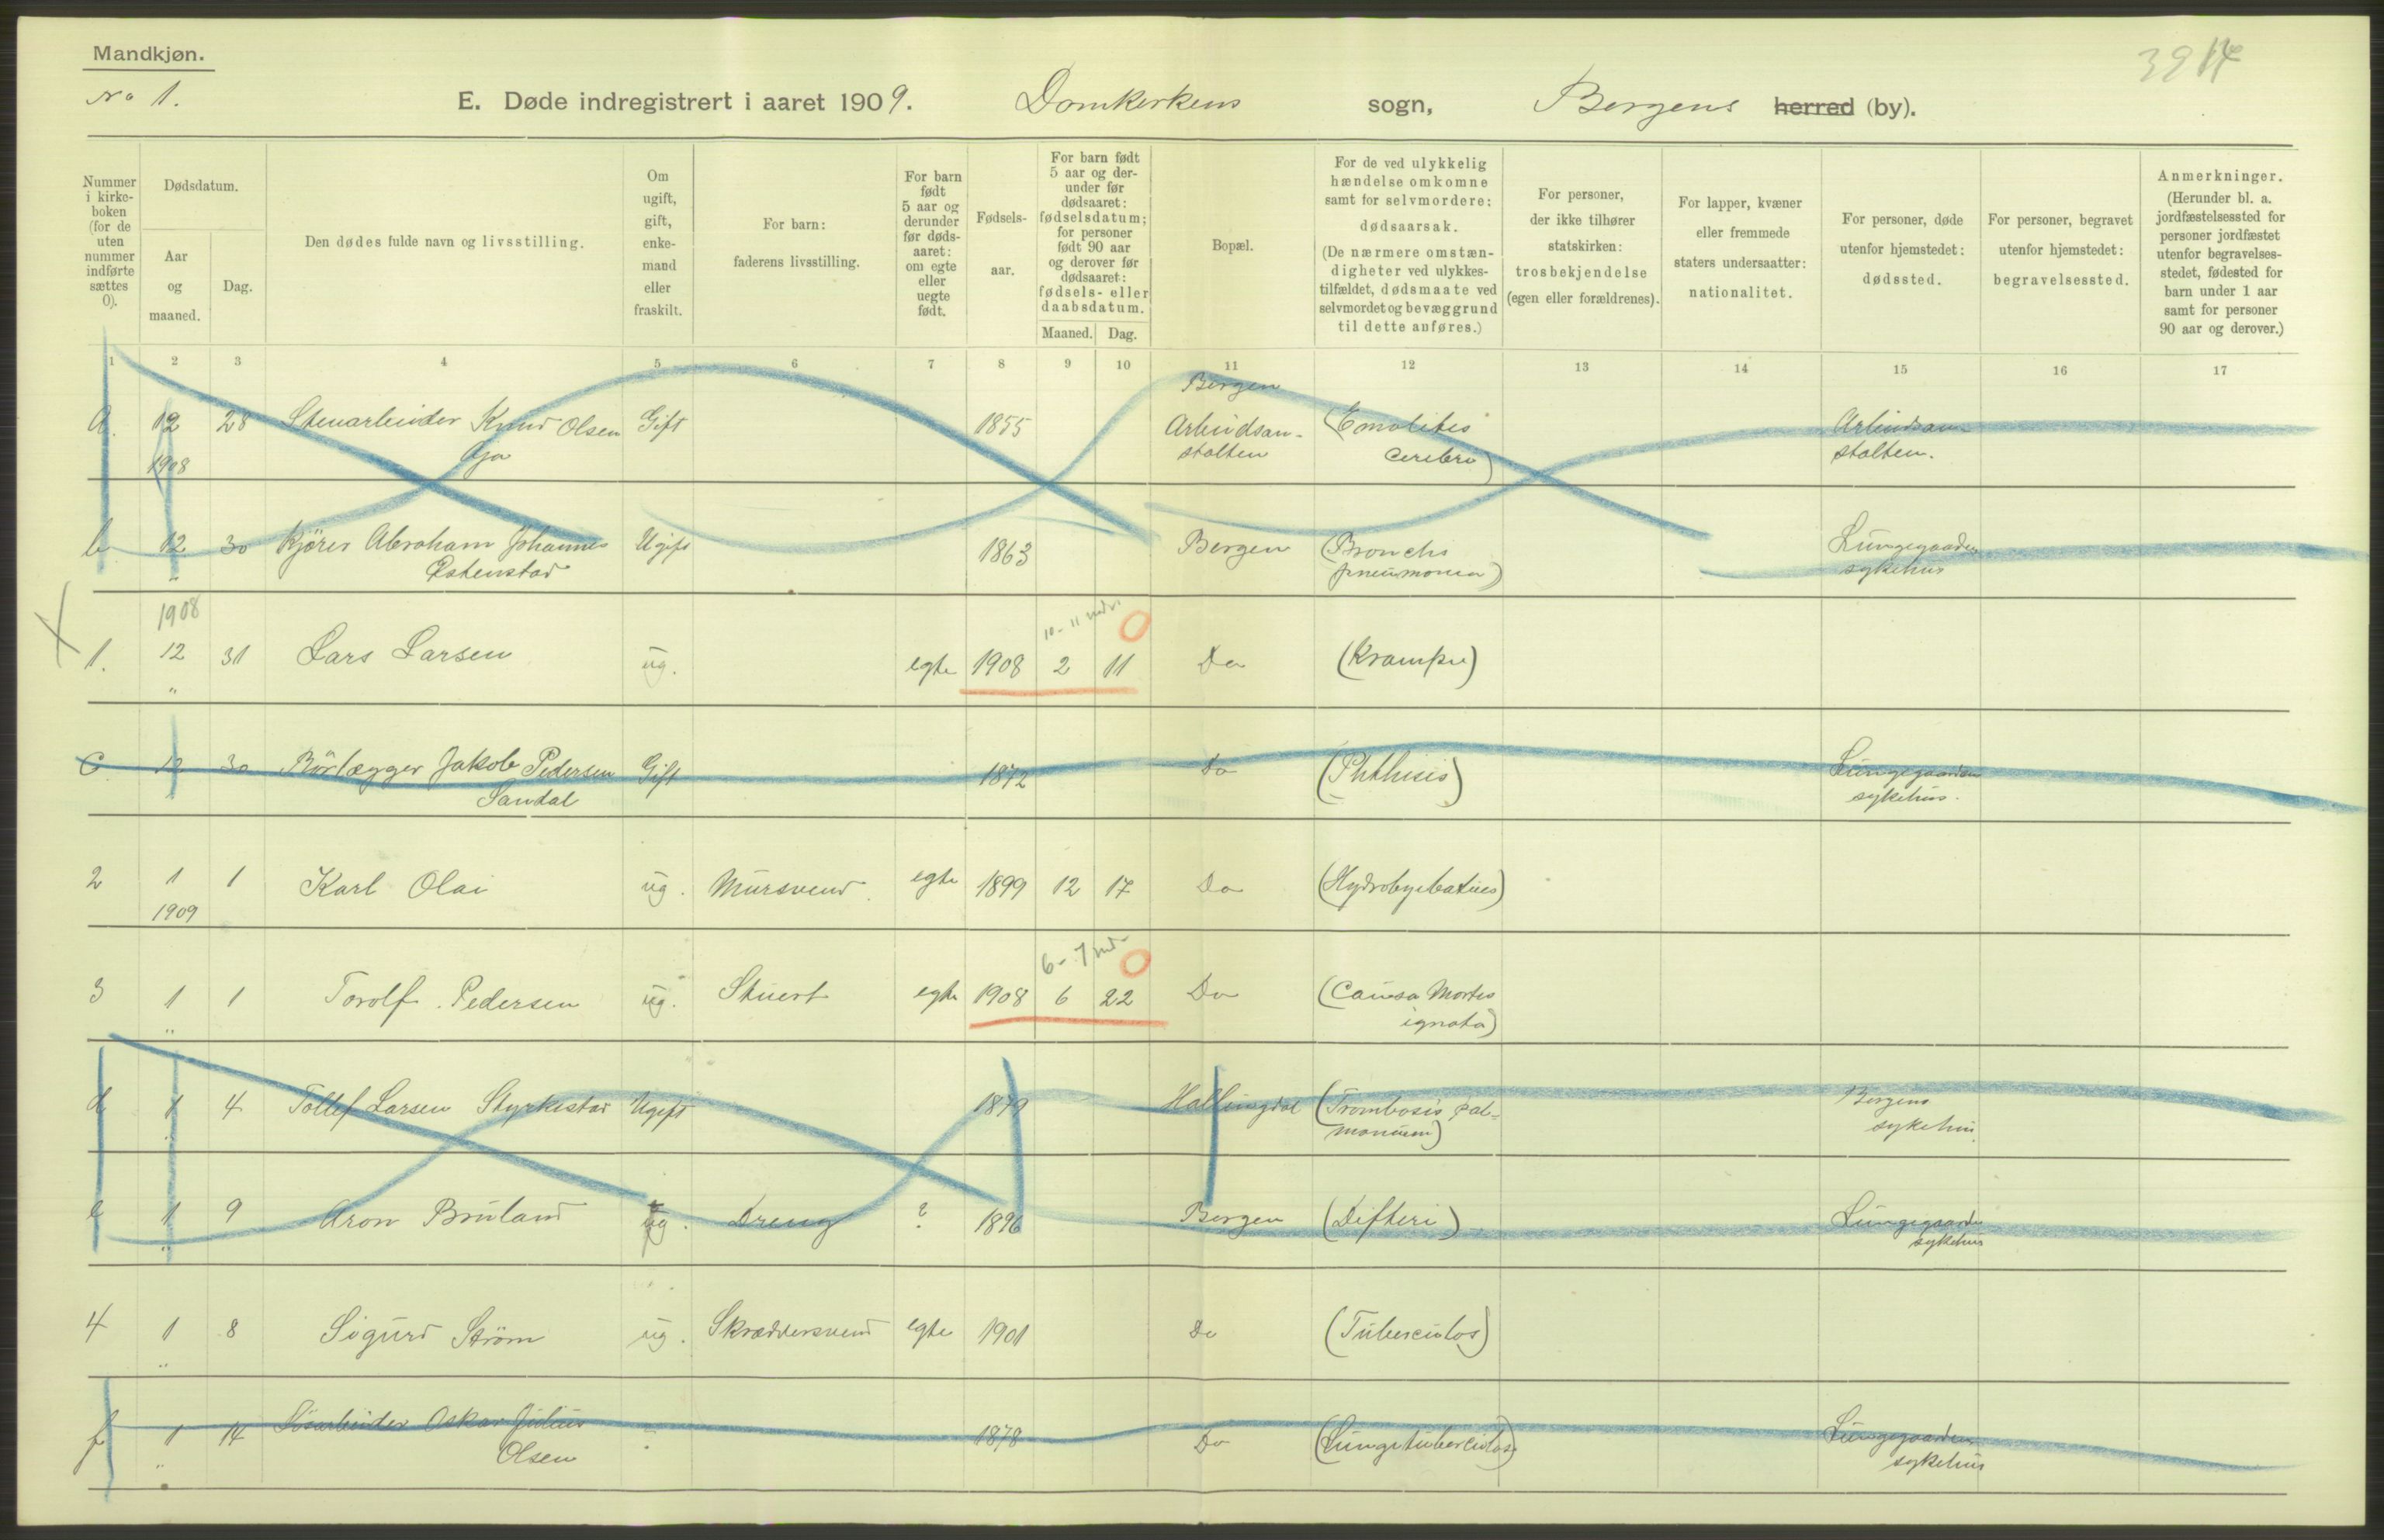 Mandkjøn.
No 1.
E. Døde indregistrert i aaret 1909. Domkirkens sogn, Bergens herred (by).
Nummer i kirkeboken (for de uten nummer indførte sættes 0).
Dødsdatum.
Aar og maaned.
Dag.
Den dødes fulde navn og livsstilling.
Om ugift, gift, enkemand eller fraskilt.
For barn: faderens livsstilling.
For barn født 5 aar og derunder før dødsaaret: om egte eller uegte født.
Fødselsaar.
For barn født 5 aar og derunder før dødsaaret: fødselsdatum; for personer født 90 aar og derover før dødsaaret: fødsels- eller daabsdatum.
Maaned. Dag.
Bopæl.
For de ved ulykkelig hændelse omkomne samt for selvmordere: dødsaarsak. (De nærmere omstændigheter ved ulykkestilfældet, dødsmaate ved selvmordet og bevæggrund til dette anføres.)
For personer, der ikke tilhører statskirken: trosbekjendelse (egen eller forældrenes).
For lapper, kvæner eller fremmede staters undersaatter: nationalitet.
For personer, døde utenfor hjemstedet: dødssted.
For personer, begravet utenfor hjemstedet: begravelsessted.
Anmerkninger. (Herunder bl. a. jordfæstelsessted for personer jordfæstet utenfor begravelsesstedet, fødested for barn under 1 aar samt for personer 90 aar og derover.)
1 2 3 4 5 6 7 8 9 10 11 12 13 14 15 16 17
Bergen
a. 12 28 Stenarbeider Knud Olsen Gift 1855 Arbeidsan- Arbeidsan
1908 stalten cerebri) stalten.
b 12 30 Kjører Abraham Johannes Ugift 1863 Bergen (Broncho Lungegaarden
" Østenstad pneumonia) sykehus
1908 10-11 mdr. 0
1. 12 31 Lars Larsen ug. egte 1908 2 11 Do (Krampe)
"
c 12 30 Rörlægger Jakob Pedersen Gift 1872 Do (Phthisis) Lungegaarden
" Sandal sykehus.
2 1 1 Karl Olai ug. Mursvend. egte 1899 12 17 Do
1909
6-7 md 0
3 1 1 Torolf Pedersen ug. Stuert egte 1908 6 22 Do (Causa Mortis
" ignota)
d 1 4 Tollef Larsen Styrkestad Ugift 1879 Hallingdal (Trombosis pul- Bergens
" monum) sykehus.
e 1 9 Aron Bruland ug. Dreng ? 1896 Bergen (Difteri) Lungegaarden
" sykehus
4 1 8 Sigurd Ström ug. Skræddersvend egte 1901 Do (Tuberculos)
"
f 1 14 Oskar Julius 1878 Do (Lungetuberculos) Lungegaarden
" Olsen sykehus